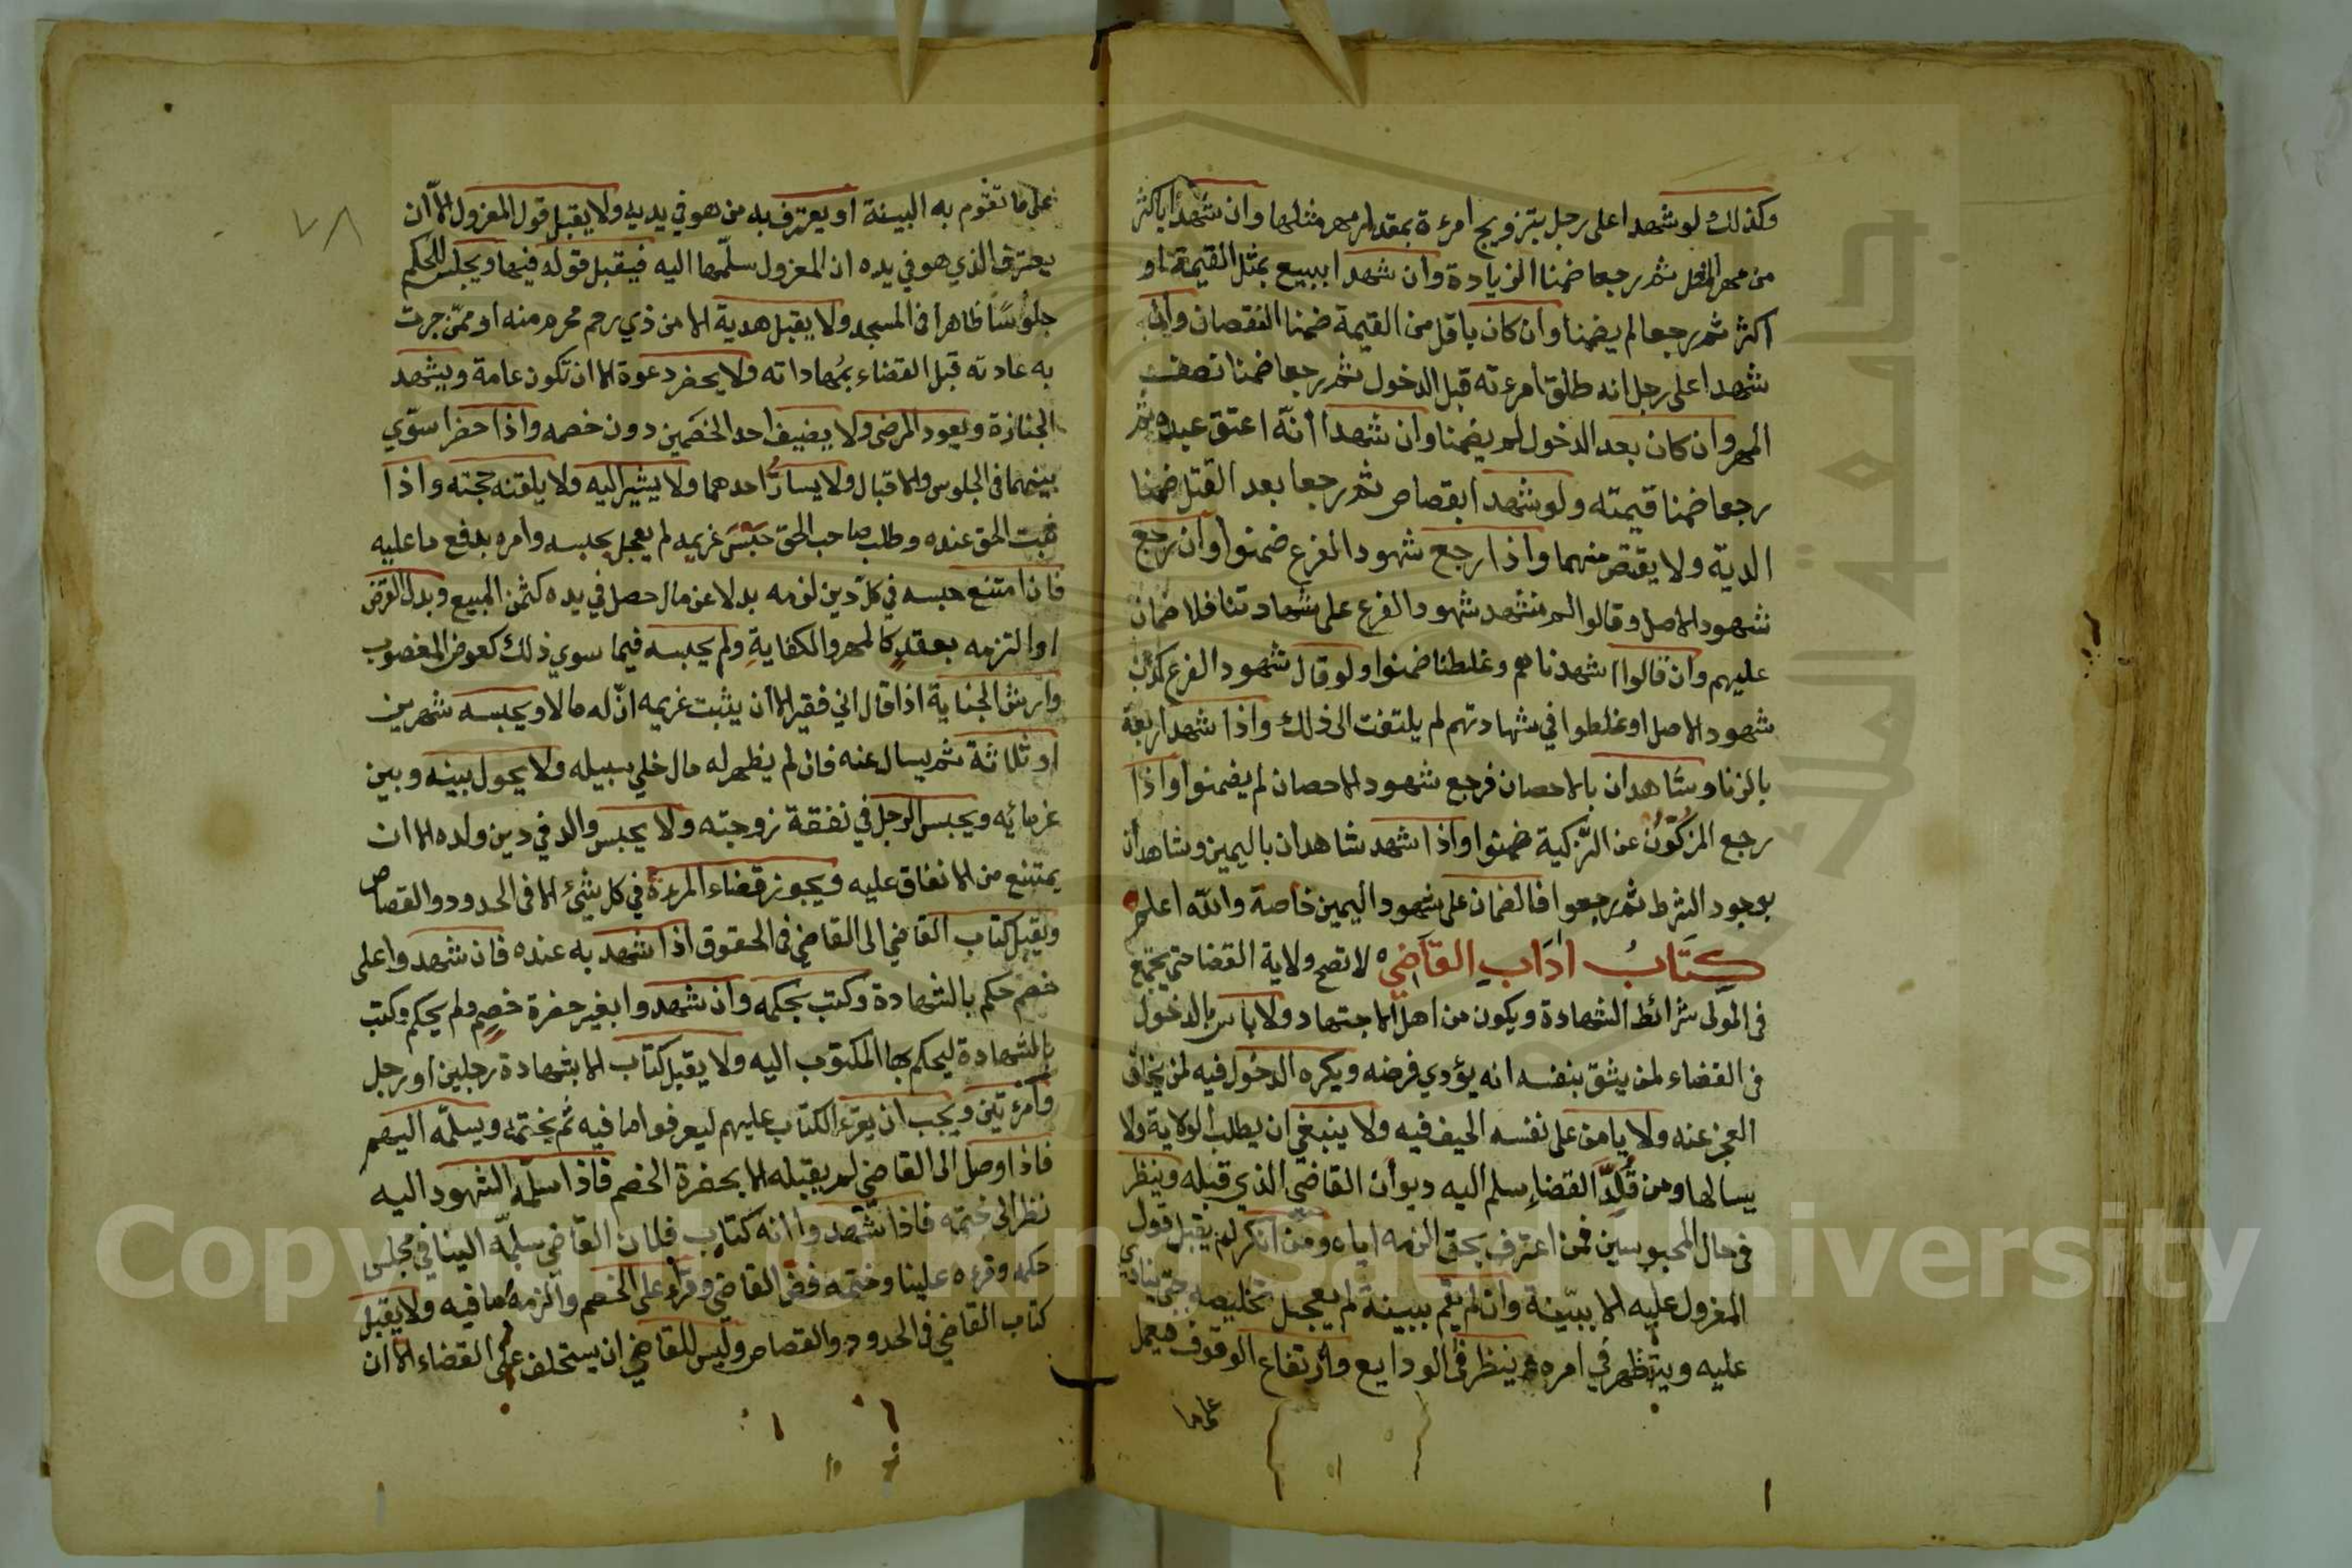 وكذلك لو شهدا على رجل بتزويج امرءة بمقدار مهر مثلها وان شهدا باكثر
من مهر المثل ثم رجعا ضمنا الزيادة وان شهدا ببيع بمثل القيمة او
اكثر ثم رجعا لم يضمنا وان كان باقل من القيمة ضمنا النقصان وان
شهدا على رجل انه طلق امرءته قبل الدخول ثم رجعا ضمنا نصف
المهر وان كان بعد الدخول لم يضمنا وان شهدا انّه اعتق عبده ثم
رجعا ضمنا قيمته ولو شهدا بقصاص ثم رجعا بعد القتل ضمنا
الديّة ولا يقتص منهما واذا رجع شهود الفرع ضمنوا وان رجع
شهود الاصل وقالوا لم نشهد شهود الفرع على شهادتنا فلا ضمان
عليهم وان قالوا اشهدناهم وغلطنا ضمنوا ولو قال شهود الفرع كذب
شهود الاصل او غلطوا في شهادتهم لم يلتفت الى ذلك واذا شهد اربعة
بالزنا وشاهدان بالاحصان فرجع شهود الاحصان لم يضمنوا واذا
رجع المزكّون عن التزكية ضمنوا واذا شهد شاهدان باليمين وشاهدان
بوجود الشرط ثم رجعوا فالضمان على شهود اليمين خاصة والله اعلم
كتابُ ادَاب القاضي لا تصح ولاية القضا حتي يجتمع
في المولى شرائط الشهادة ويكون من اهل الاجتهاد ولا باس بالدخول
في القضاء لمن يثق بنفسه انه يؤدي فرضه ويكره الدخول فيه لمن يخاف
العجز عنه ولا يامن على نفسه الحيف فيه ولا ينبغي ان يطلب الولاية ولا
يسالها ومن قُلِّدَ القضاء سلم اليه ديوان القاضي الذي قبله وينظر
في حال المحبوسين فمن اعترف بحق الزمه اياه ومن انكر لم يقبل قول
المعزول عليه الا ببيّنة وان لم يقم ببينة لم يعجل تخليصه حتى ينادي
عليه ويستظهر في امره وينظر في الودايع وارتفاع الوقوف فيعمل
على ما
٧٨
على ما تقوم به البينة او يعترف به من هو في يديه ولا يقبل قول المعزول الا ان
يعترف الذي هو في يده ان المعزول سلّمها اليه فيقبل قوله فيها ويجلس للحكم
جلوسًا ظاهرا في المسجد ولا يقبل هدية الا من ذي رحم محرم منه او ممّن جرت
به عادته قبل القضاء بمُهاداته ولا يحضر دعوة الا ان تكون عامة ويشهد
الجنازة ويعود المرضى ولا يضيف احد الخصمين دون خصمه واذا حضرا سوّي
بينهما في الجلوس والاقبال ولا يسارّ احدهما ولا يشير اليه ولا يلقنه حجته واذا
ثبت الحق عنده وطلب صاحب الحق حَبْسَ غريمه لم يعجل بحبسه وامره بدفع ما عليه
فان امتنع حبسه في كل دين لزمه بدلا عن مال حصل في يده كثمن المبيع وبدل القرض
او التزمه بعقدٍ كالمهر والكفايةِ ولم يحبسه فيما سوي ذلك كعوض المغصوب
وارش الجناية اذا قال اني فقير الا ان يثبت غريمه انّ له مالا ويحبسه شهرين
او ثلاثة ثم يسال عنه فان لم يظهر له مال خلي سبيله ولا يحول بينه وبين
غرمائه ويحبس الرجل في نفقة زوجته ولا يحبس والد في دين ولده الا ان
يمتنع من الانفاق عليه ويجوز قضاء المرءة في كل شئ الا في الحدود والقصاص
ويقبل كتاب القاضي الى القاضي في الحقوق اذا شهد به عنده فان شهدوا على
خصم حكم بالشهادة وكتب بحكمه وان شهدوا بغير حضرة خصمٍ لم يحكم وكتب
بالشهادة ليحكم بها المكتوب اليه ولا يقبل كتاب الا بشهادة رجلين او رجل
وامرءتين ويجب ان يقرء الكتاب عليهم ليعرفوا ما فيه ثم يختمه ويسلّمه اليهم
فاذا وصل الى القاضي لم يقبله الا بحضرة الخصم فاذا سلّمه الشهود اليه
نظر الى ختمه فاذا شهدوا انه كتاب فلان القاضي سلّمه الينا في مجلس
حكمه وقرءه علينا وختمه فضّ القاضي وقرأه على الخصم والزمه ما فيه ولا يقبل
كتاب القاضي في الحدود والقصاص وليس للقاضي ان يستخلف على القضاء الا ان
جامعة الملك
Copyright © King Saud University